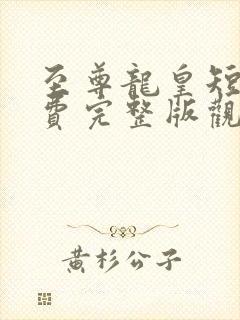 至尊龍皇短
費完整版觀
黃杉公子